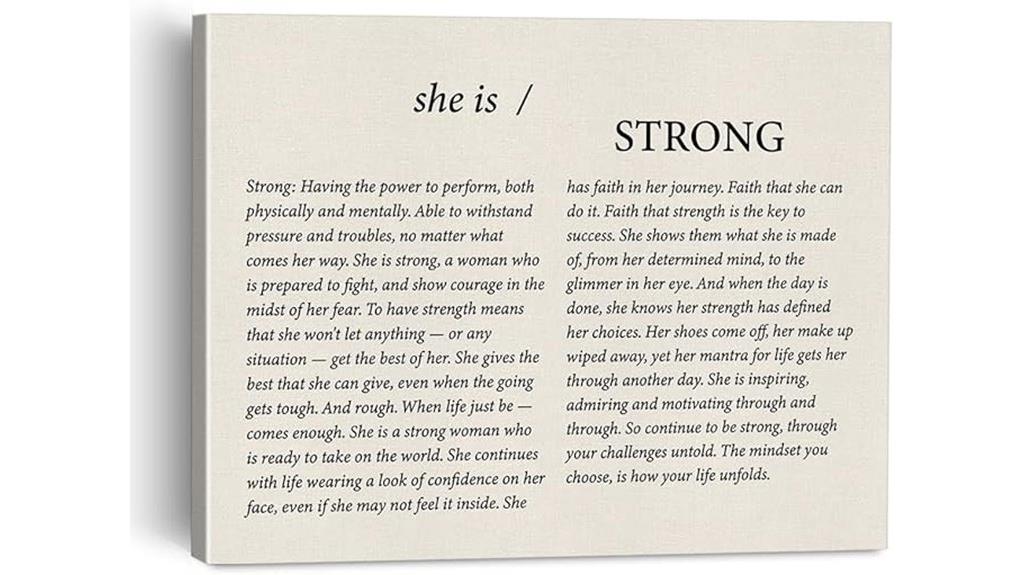 she is /
STRONG
Strong: Having the power to perform, both
physically and mentally. Able to withstand
pressure and troubles, no matter what
comes her way. She is strong, a woman who
is prepared to fight, and show courage in the
midst of her fear. To have strength means
that she won't let anything — or any
situation — get the best of her. She gives the
best that she can give, even when the going
gets tough. And rough. When life just be —
comes enough. She is a strong woman who
is ready to take on the world. She continues
with life wearing a look of confidence on her
face, even if she may not feel it inside. She
has faith in her journey. Faith that she can
do it. Faith that strength is the key to
success. She shows them what she is made
of, from her determined mind, to the
glimmer in her eye. And when the day is
done, she knows her strength has defined
her choices. Her shoes come off, her make up
wiped away, yet her mantra for life gets her
through another day. She is inspiring,
admiring and motivating through and
through. So continue to be strong, through
your challenges untold. The mindset you
choose, is how your life unfolds.